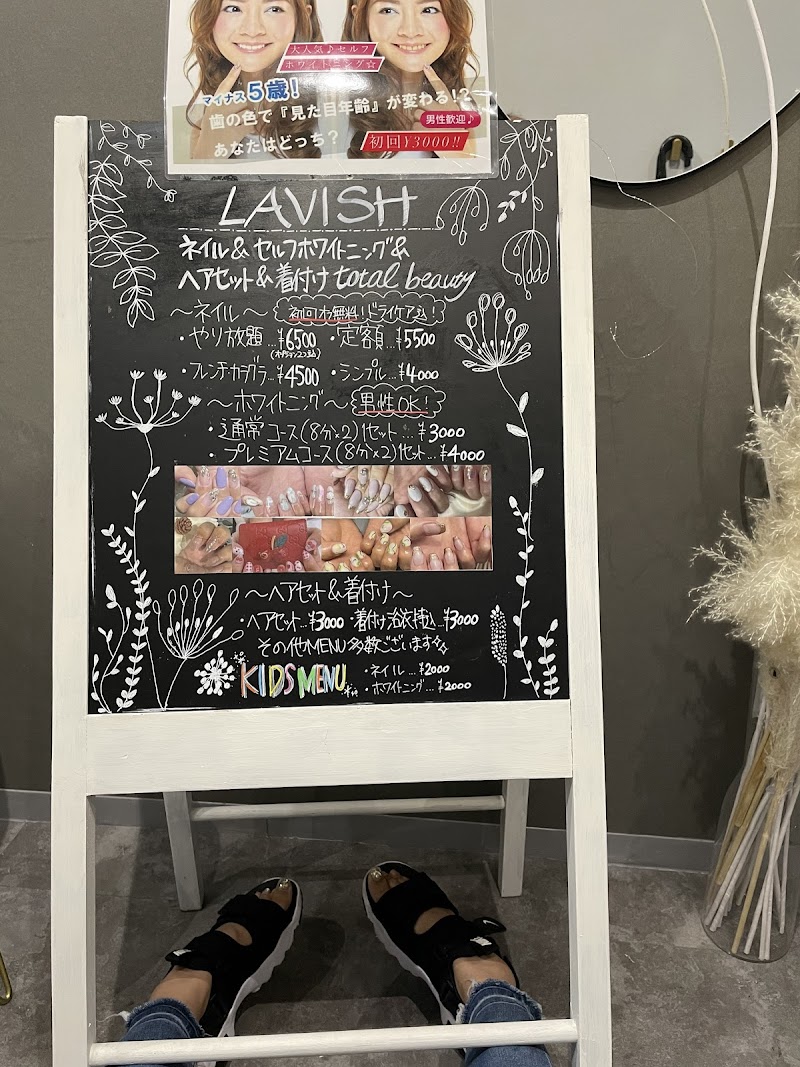 大人気♪セルフ
ホワイトニング☆
マイナス5歳!
歯の色で『見た目年齢』が変わる!?
男性歓迎♪
あなたはどっち?
初回¥3000!!
LAVISH
ネイル&セルフホワイトニング&
ヘアセット&着付け total beauty
〜ネイル〜 初回オフ無料!ドライケア込!
・やり放題…¥6500 ・定額…¥5500
・フレンチorカラグラ…¥4500 ・シンプル…¥4000
〜ホワイトニング〜 男性OK!
・通常コース(8分×2)1セット…¥3000
・プレミアムコース(8分×2)1セット…¥4000
〜ヘアセット&着付け〜
・ヘアセット…¥3000 ・着付け浴衣持込…¥3000
その他MENU多数ございます
KIDS MENU
・ネイル…¥2000
・ホワイトニング…¥2000